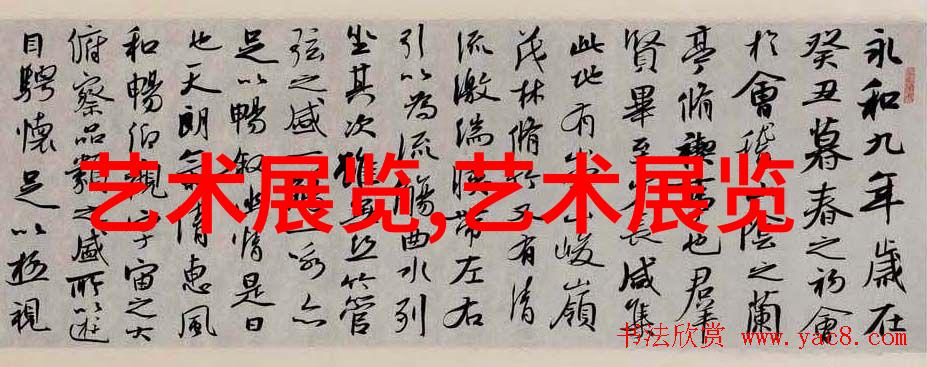 永和九年歲在
癸丑暮春之初會
於會稽山陰之蘭
亭脩禊事也羣
賢畢至少長咸集
此地有崇山峻嶺
茂林脩竹又有清
流激湍映帶左右
引以為流觴曲水列
坐其次雖無絲竹管
弦之盛一觴一詠亦
足以暢敘幽情是日
也天朗氣清惠風
和暢仰觀宇宙之大
俯察品類之盛所以遊
目騁懷足以極視
艺术展览,艺术展览
书法欣赏 www.yac8.com